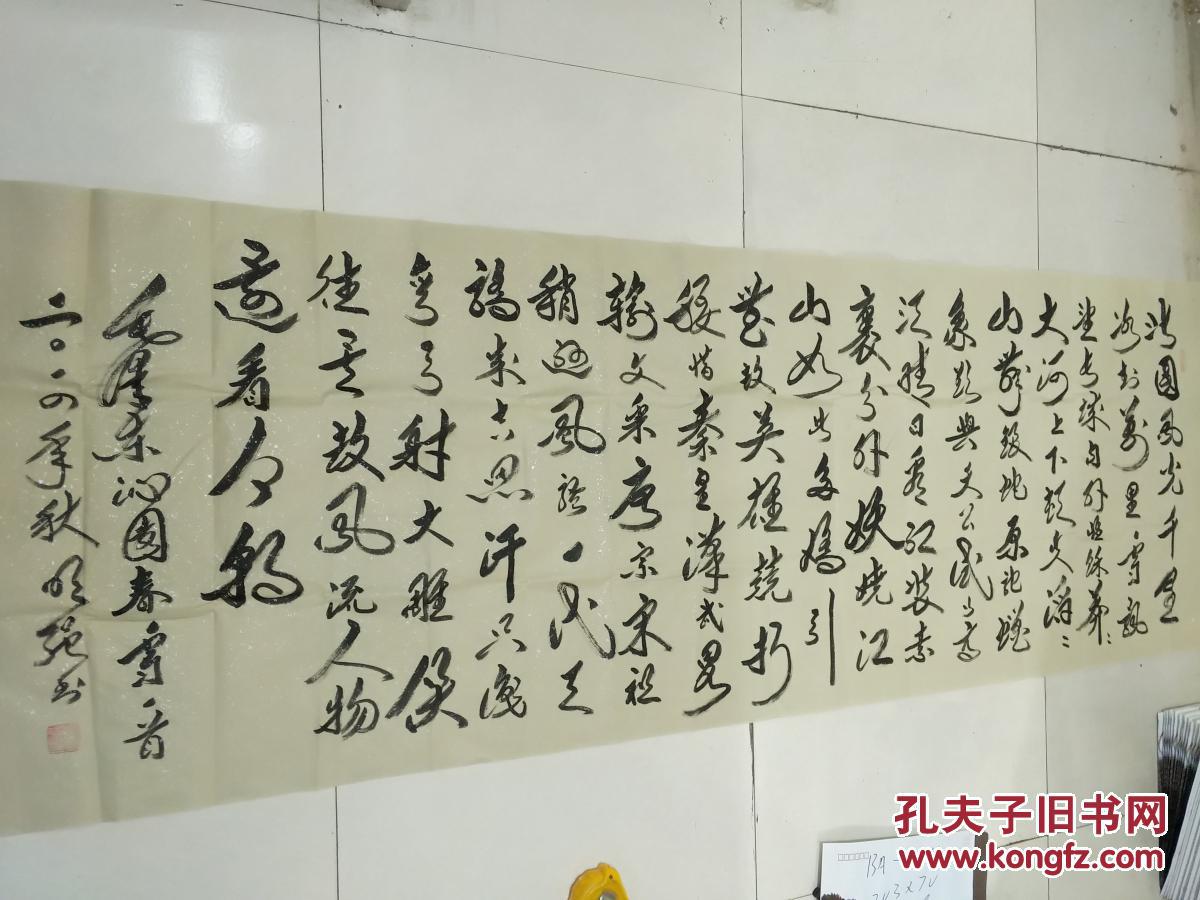 北國風光千里
冰封萬里雪飘
望长城内外惟餘莽ミ
大河上下頓失滔ミ
山舞银蛇原驰蠟
象欲與天公試比高
须晴日看红装素
裹分外妖娆江
山如此多娇引
無数英雄競折
腰惜秦皇漢武略
输文采唐宗宋祖
稍逊風骚一代天
骄成吉思汗只識
弯弓射大雕俱
往矣数風流人物
還看今朝
毛澤东沁園春雪一首
二〇一四年秋书
孔夫子旧书网
www.kongfz.com